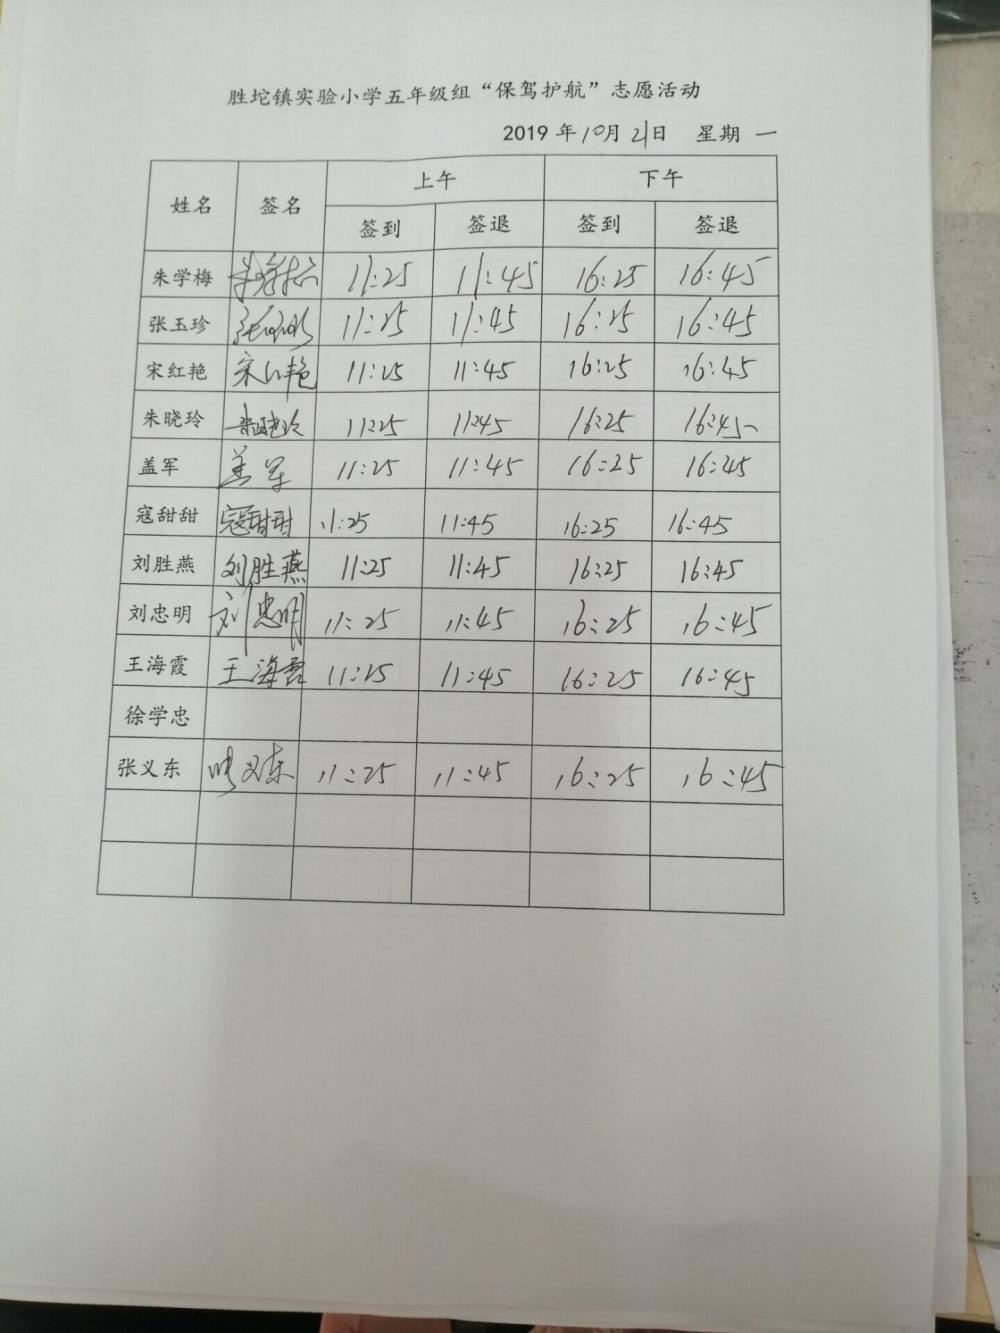 胜坨镇实验小学五年级组“保驾护航”志愿活动
2019 年 10月 21日 星期 一
姓名 签名 上午 下午
签到 签退 签到 签退
朱学梅 朱学梅 11:25 11:45 16:25 16:45
张玉珍 11:25 11:45 16:25 16:45
宋红艳 宋红艳 11:25 11:45 16:25 16:45
朱晓玲 朱晓玲 11:25 11:45 16:25 16:45
盖军 盖军 11:25 11:45 16:25 16:45
寇甜甜 寇甜甜 11:25 11:45 16:25 16:45
刘胜燕 刘胜燕 11:25 11:45 16:25 16:45
刘忠明 刘忠明 11:25 11:45 16:25 16:45
王海霞 王海霞 11:25 11:45 16:25 16:45
徐学忠
张义东 张义东 11:25 11:45 16:25 16:45